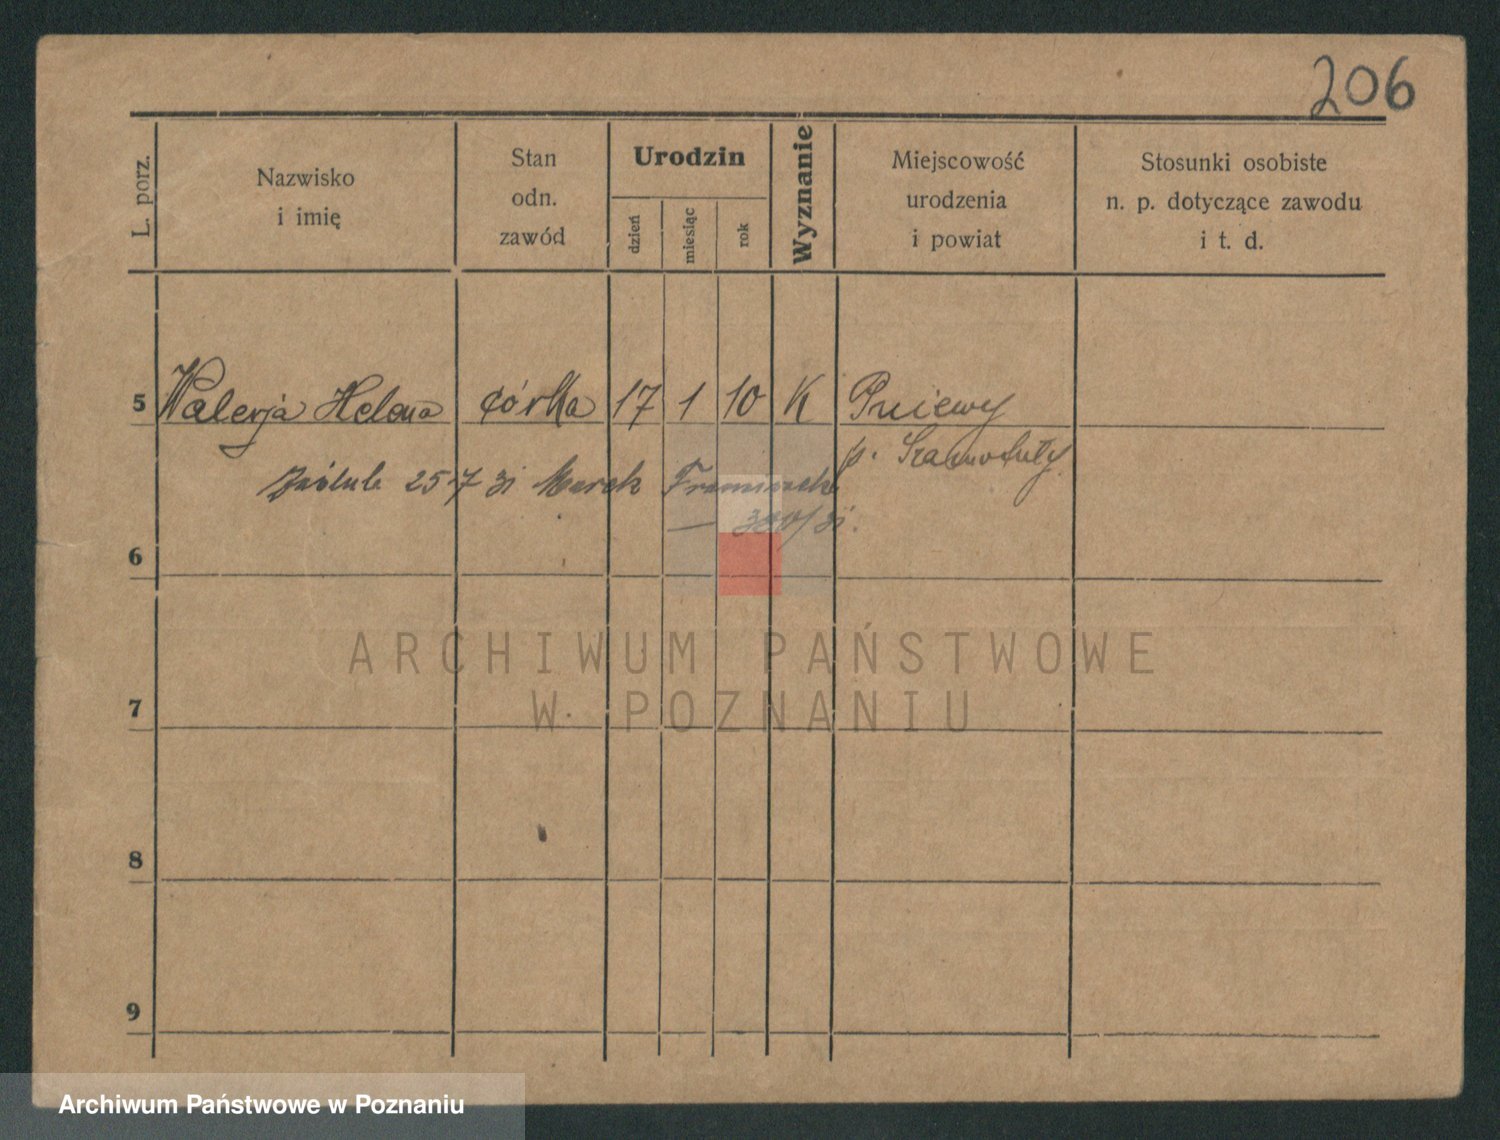 206
L. porz.
Nazwisko
i imię
Stan
odn.
zawód
Urodzin
dzień
miesiąc
rok
Wyznanie
Miejscowość
urodzenia
i powiat
Stosunki osobiste
n. p. dotyczące zawodu
i t. d.
5 Walerja Helena córka 17 1 10 K Pniewy
p. Szamotuły
25 7 31 Marek Franciszek
380/31.
6
ARCHIWUM PAŃSTWOWE
W POZNANIU
7
8
9
Archiwum Państwowe w Poznaniu